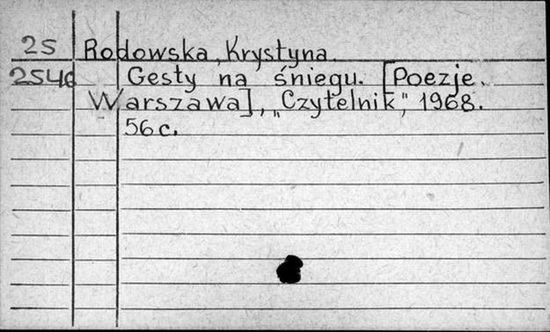 25 Rodowska, Krystyna.
2546 Gesty na śniegu. [Poezje.
Warszawa], „Czytelnik”, 1968.
56 c.